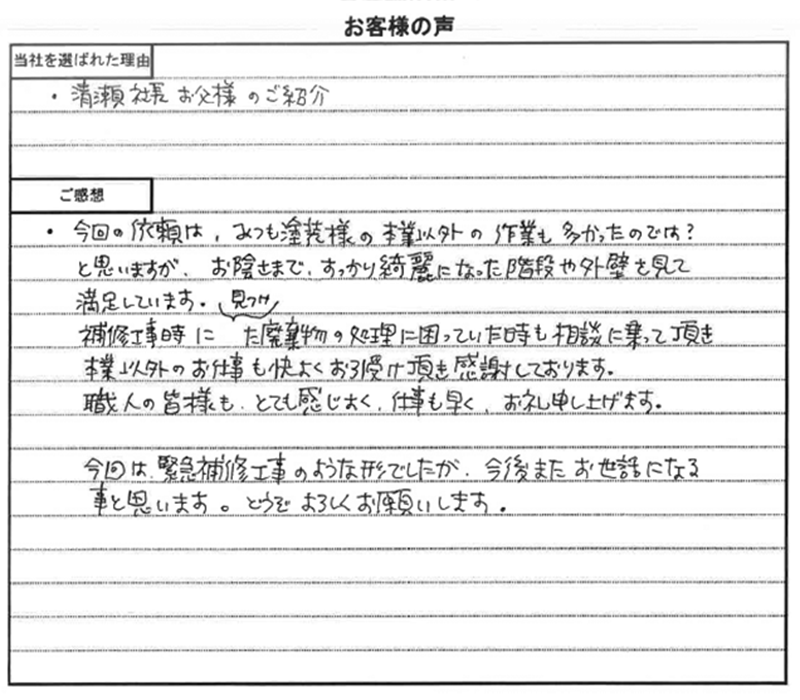 お客様の声
当社を選ばれた理由
・清瀬社長お父様のご紹介
ご感想
・今回の依頼は、みつも塗装様の本業以外の作業も多かったのでは?
と思いますが、お陰さまで、すっかり綺麗になった階段や外壁を見て
満足しています。
補修工事時に見つけた廃棄物の処理に困っていた時も相談に乗って頂き
本業以外のお仕事も快よくお引受け頂き感謝しております。
職人の皆様も、とても感じよく、仕事も早く、お礼申し上げます。
今回は、緊急補修工事のような形でしたが、今後またお世話になる
事と思います。どうぞよろしくお願いします。